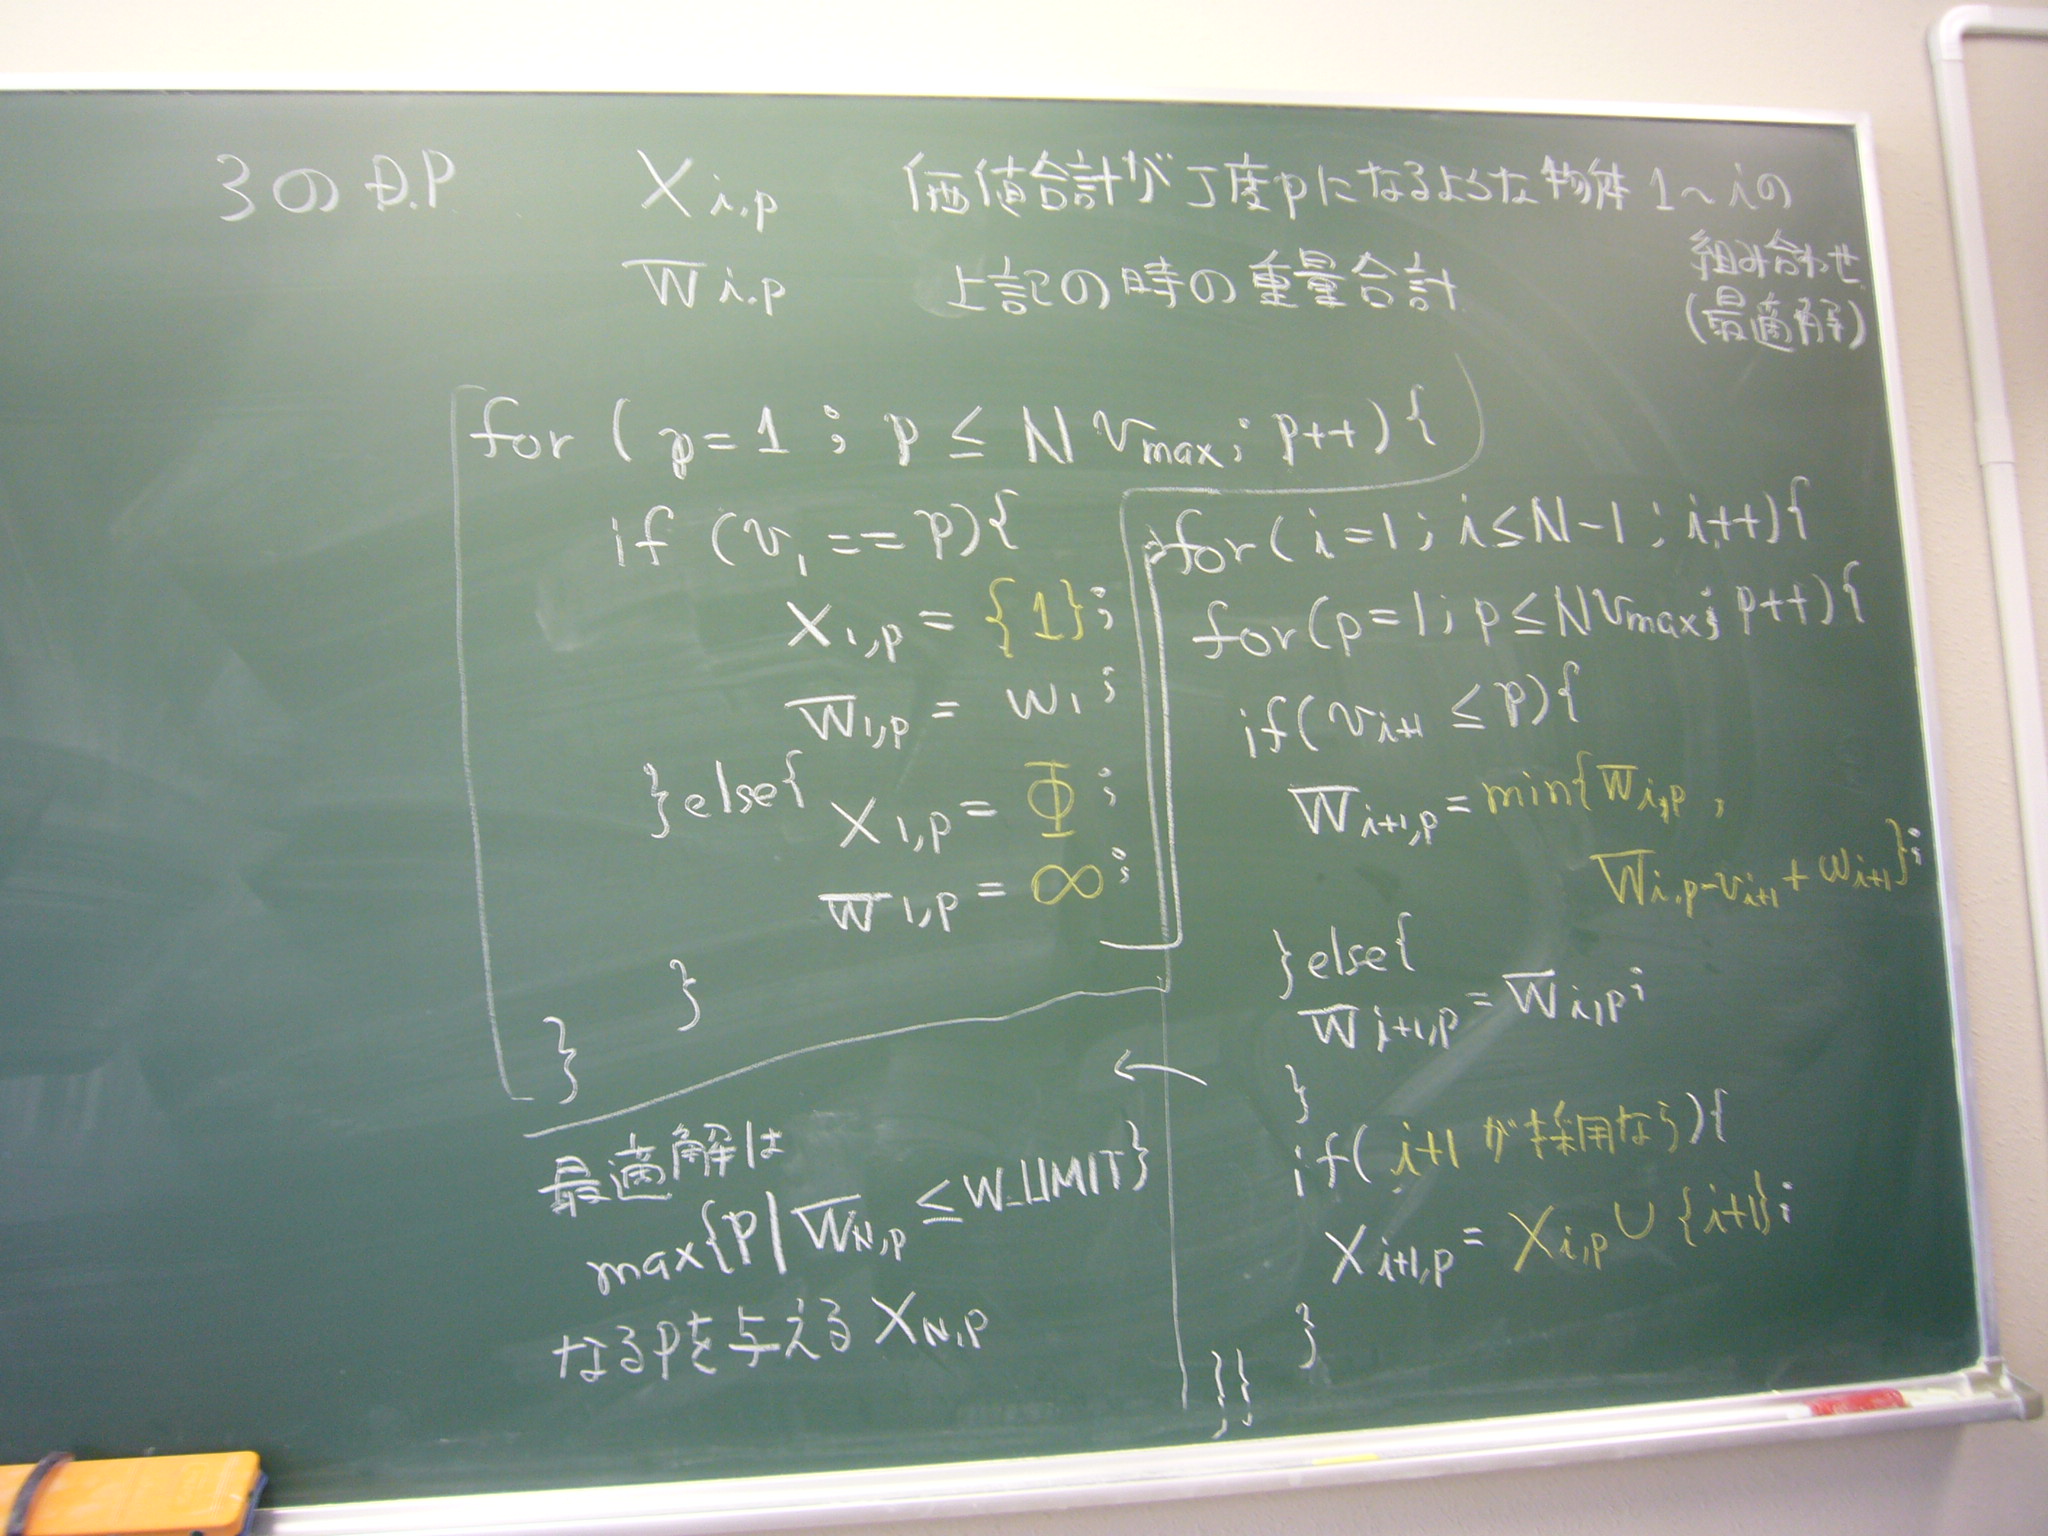 3のD.P
X i,p 価値合計が丁度pになるような物体1〜iの
組み合わせ
(最適解)
W i,p 上記の時の重量合計
for ( p=1 ; p ≤ N vmax; p++ ) {
if (v1 == p){
X1,p = {1};
W1,p = w1;
}else{
X1,p = Φ;
W1,p = ∞;
}
}
for(i=1; i≤N-1; i++){
for(p=1; p≤Nvmax; p++){
if(vi+1 ≤ p){
Wi+1,p = min{Wi,p ,
Wi,p-vi+1 + wi+1};
}else{
Wi+1,p = Wi,p;
}
if( i+1が採用なら){
Xi+1,p = Xi,p ∪ {i+1};
}
}}
最適解は
max{p | WN,p ≤ W_LIMIT}
なるpを与える XN,p